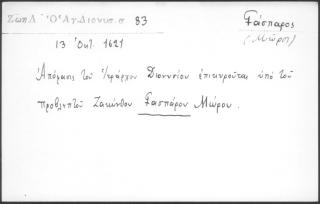 Ζωη Λ. Ὁ Ἅγ. Διονυσ. σ 83
Γάσπαρος
(Μώρος)
13 Ὀκτ. 1621
Ἀπόφασις τοῦ Ἱεράρχου Διονυσίου ἐπικυροῦται ὑπό τοῦ
προβλεπτοῦ Ζακύνθου Γασπάρου Μώρου.